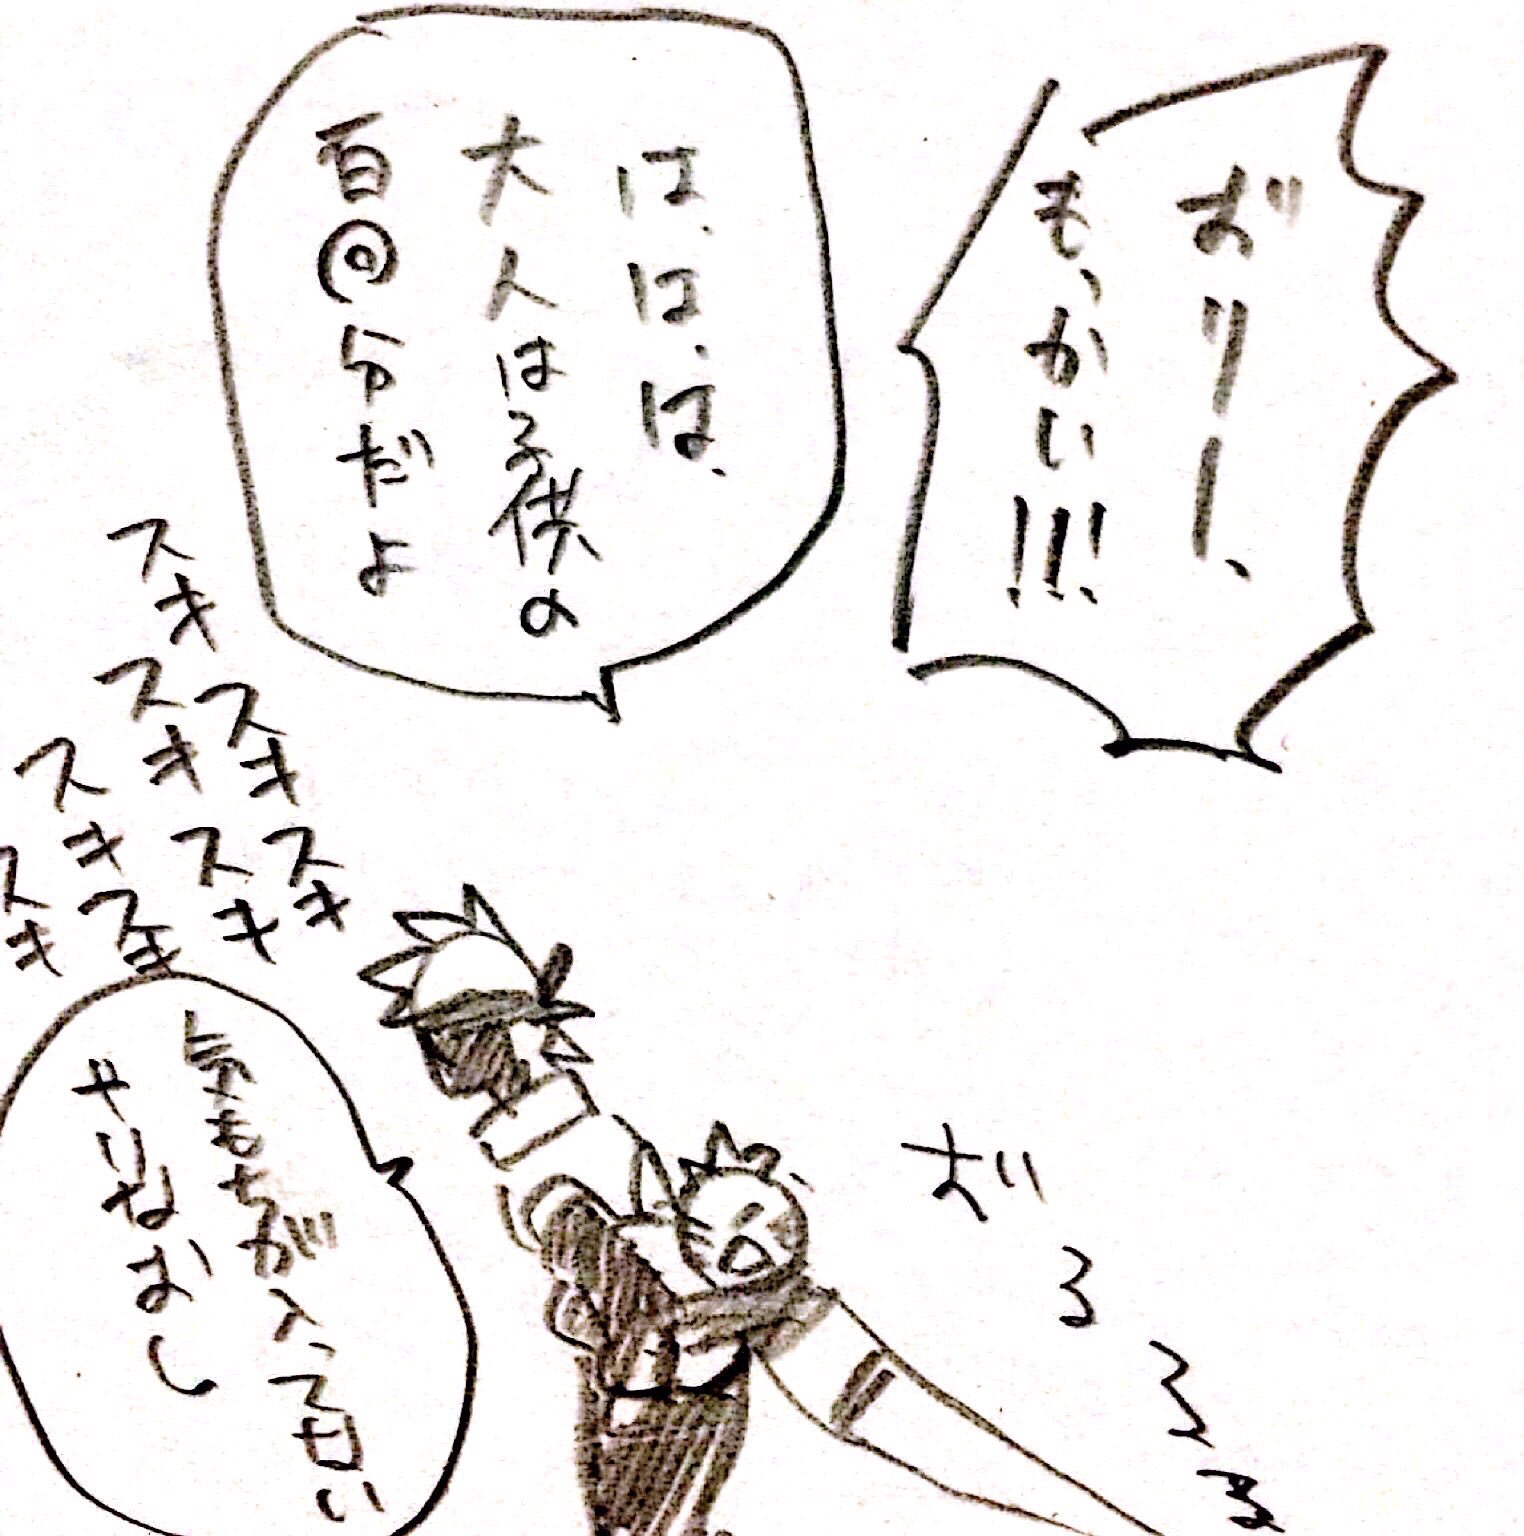 おりーー、
も、かい!!!
は、は、は、
大人は子供の
百回分だよ
スキ
スキ
スキ
スキ
スキ
スキ
スキ
スキ
気もちが入ってない
やりなおし